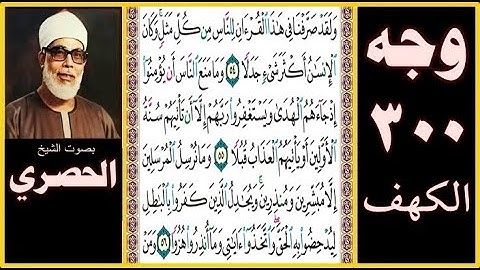 وجه
٣٠٠
الكهف
بصوت الشيخ
الحصري
وَلَقَدْ صَرَّفْنَا فِي هَٰذَا ٱلْقُرْءَانِ لِلنَّاسِ مِن كُلِّ مَثَلٍ ۚ وَكَانَ
ٱلْإِنسَٰنُ أَكْثَرَ شَىْءٍ جَدَلًا ٥٤ وَمَا مَنَعَ ٱلنَّاسَ أَن يُؤْمِنُوٓا۟
إِذْ جَآءَهُمُ ٱلْهُدَىٰ وَيَسْتَغْفِرُوا۟ رَبَّهُمْ إِلَّآ أَن تَأْتِيَهُمْ سُنَّةُ
ٱلْأَوَّلِينَ أَوْ يَأْتِيَهُمُ ٱلْعَذَابُ قُبُلًا ٥٥ وَمَا نُرْسِلُ ٱلْمُرْسَلِينَ
إِلَّا مُبَشِّرِينَ وَمُنذِرِينَ ۚ وَيُجَٰدِلُ ٱلَّذِينَ كَفَرُوا۟ بِٱلْبَٰطِلِ
لِيُدْحِضُوا۟ بِهِ ٱلْحَقَّ ۖ وَٱتَّخَذُوٓا۟ ءَايَٰتِى وَمَآ أُنذِرُوا۟ هُزُوًا ٥٦ وَمَنْ